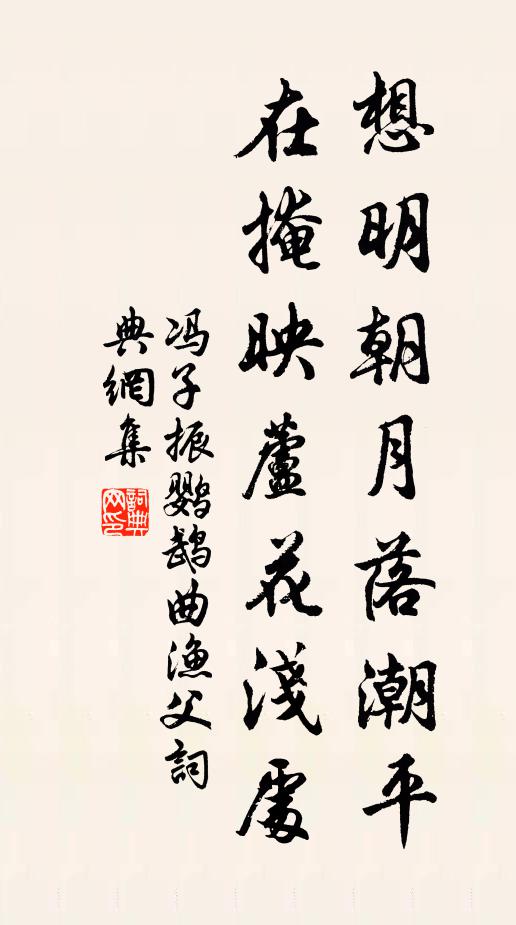 想明朝月落潮平
在掩映蘆花淺處
冯子振鹦鹉曲渔父詞
典網集
詞典网印